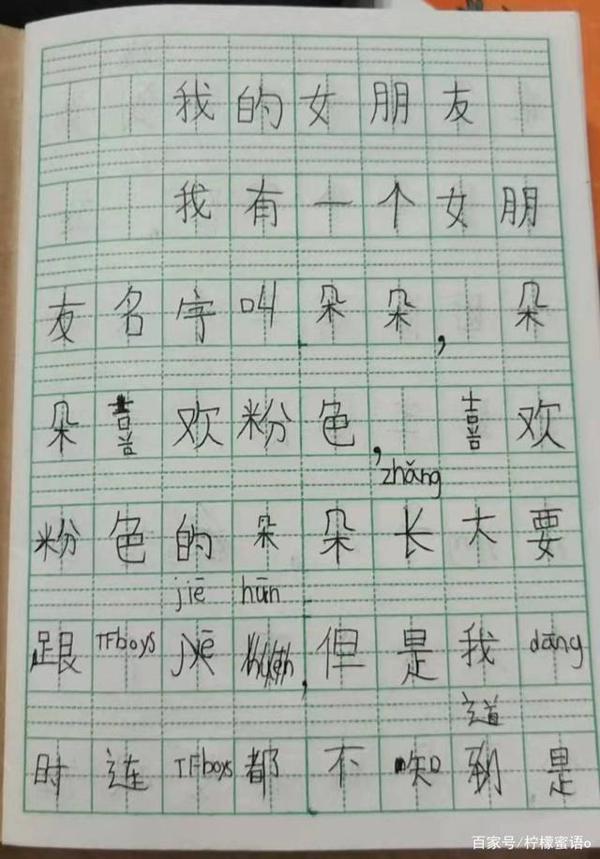 我的女朋友
我有一个女朋
友名字叫朵朵,朵
朵喜欢粉色,喜欢
zhǎng
粉色的朵朵长大要
jiē hūn
跟TFboys jiē ,但是我dāng
道
时连TFboys都不知到是
百家号/柠檬蜜语o